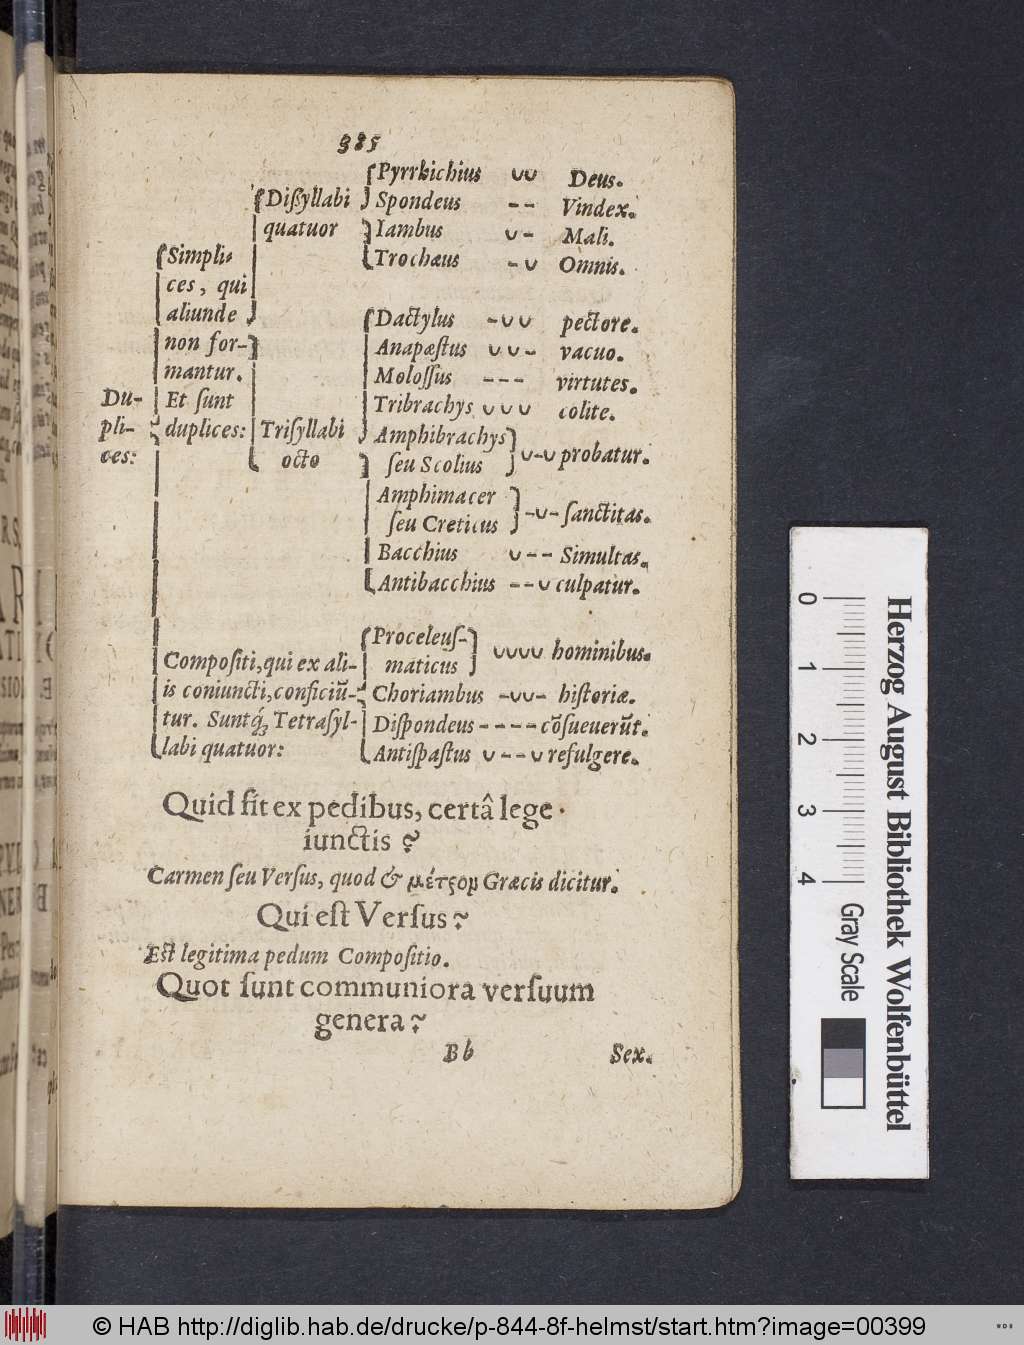 385
Duplices:
Du-
pli-
ces:
Simpli-
ces, qui
aliunde
non for-
mantur.
Et ſunt
duplices:
Dißyllabi
quatuor
Pyrrhichius ∪∪ Deus.
Spondeus -- Vindex.
Iambus ∪- Mali.
Trochæus -∪ Omnis.
Triſyllabi
octo
Dactylus -∪∪ pectore.
Anapæſtus ∪∪- vacuo.
Moloſſus --- virtutes.
Tribrachys ∪∪∪ colite.
Amphibrachys
ſeu Scolius ∪-∪ probatur.
Amphimacer
ſeu Creticus -∪- ſanctitas.
Bacchius ∪-- Simultas.
Antibacchius --∪ culpatur.
Compoſiti, qui ex ali-
is coniuncti, conficiũ-
tur. Suntq́ꝫ Tetraſyl-
labi quatuor:
Proceleuſ-
maticus ∪∪∪∪ hominibus.
Choriambus -∪∪- hiſtoriæ.
Diſpondeus ---- cõſueuerũt.
Antiſpaſtus ∪--∪ refulgere.
Quid ſit ex pedibus, certâ lege
iunctis ?
Carmen ſeu Verſus, quod & μέτρον Græcis dicitur.
Qui eſt Verſus ?
Eſt legitima pedum Compoſitio.
Quot ſunt communiora verſuum
genera ?
Bb Sex.
0 1 2 3 4
Gray Scale
Herzog August Bibliothek Wolfenbüttel
© HAB http://diglib.hab.de/drucke/p-844-8f-helmst/start.htm?image=00399